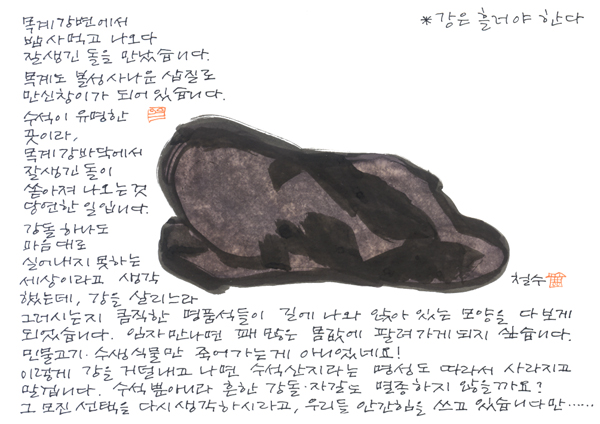 *강은 흘러야 한다
목계강변에서
밥사먹고 나오다
잘생긴 돌을 만났습니다.
목계도 볼성사나운 삽질로
만신창이가 되어있습니다.
수석이 유명한
곳이라,
목계강바닥에서
잘생긴 돌이
쏟아져 나오는것
당연한 일입니다.
강돌 하나도
마음대로
실어내지 못하는
세상이라고 생각
했는데, 강을 살리느라
그러시는지 큼직한 명품석들이 길에 나와 앉아 있는 모양을 다 보게
되었습니다. 임자만나면 꽤 많은 몸값에 팔려가게 되지 싶습니다.
민물고기·수생식물만 죽어가는게 아니었네요!
이렇게 강을 거덜내고 나면 수석산지라는 명성도 따라서 사라지고
말겁니다. 수석뿐아니라 흔한 강돌·자갈도 멸종하지 않을까요?
그 모진 선택을 다시 생각하시라고, 우리들 안간힘을 쓰고 있습니다만……
철수